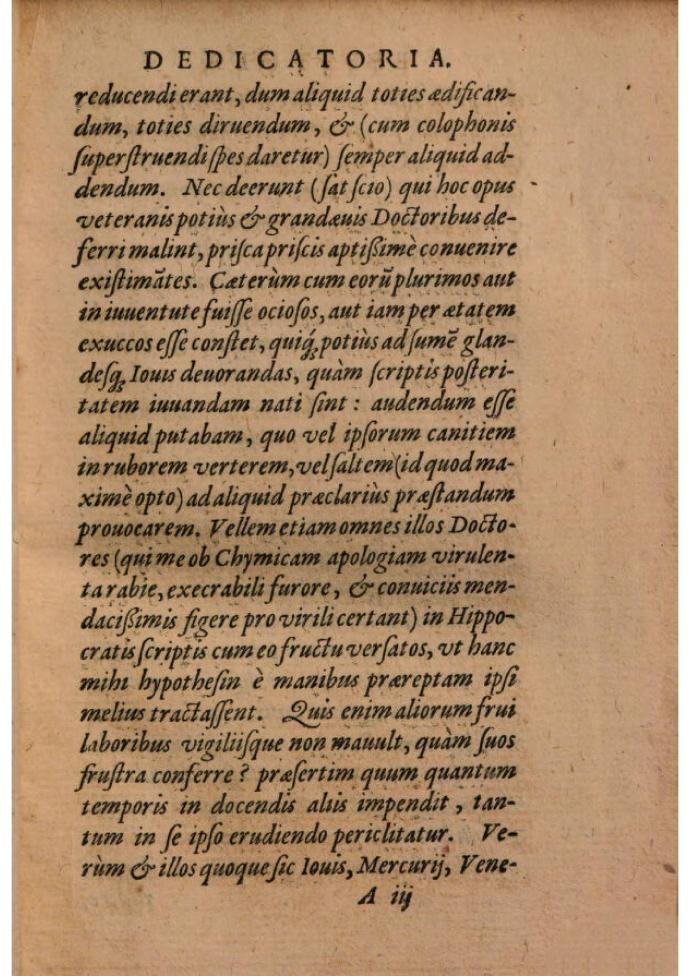 DEDICATORIA.
reducendi erant, dum aliquid toties ædifican-
dum, toties diruendum, & (cum colophonis
ſuperſtruendi ſpes daretur) ſemper aliquid ad-
dendum. Nec deerunt (ſat ſcio) qui hoc opus
veteranis potiùs & grandæuis Doctoribus de-
ferri malint, priſca priſcis aptiſſimè conuenire
exiſtimātes. Cæterùm cum eorū plurimos aut
in iuuentute fuiſſe ocioſos, aut iam per ætatem
exuccos eſſe conſtet, quiq́; potiùs ad ſumē glan-
deſq́; Iouis deuorandas, quàm ſcriptis poſteri-
tatem iuuandam nati ſint: audendum eſſe
aliquid putabam, quo vel ipſorum canitiem
in ruborem verterem, vel ſaltem (id quod ma-
ximè opto) ad aliquid præclariùs præſtandum
prouocarem. Vellem etiam omnes illos Docto-
res (qui me ob Chymicam apologiam virulen-
ta rabie, execrabili furore, & conuiciis men-
daciſſimis figere pro virili certant) in Hippo-
cratis ſcriptis cum eo fructu verſatos, vt hanc
mihi hypotheſin è manibus præreptam ipſi
melius tractaſſent. Quis enim aliorum frui
laboribus vigiliiſque non mauult, quàm ſuos
fruſtra conferre? præſertim quum quantum
temporis in docendis aliis impendit, tan-
tum in ſe ipſo erudiendo periclitatur. Ve-
rùm & illos quoque ſic Iouis, Mercurij, Vene-
A iij